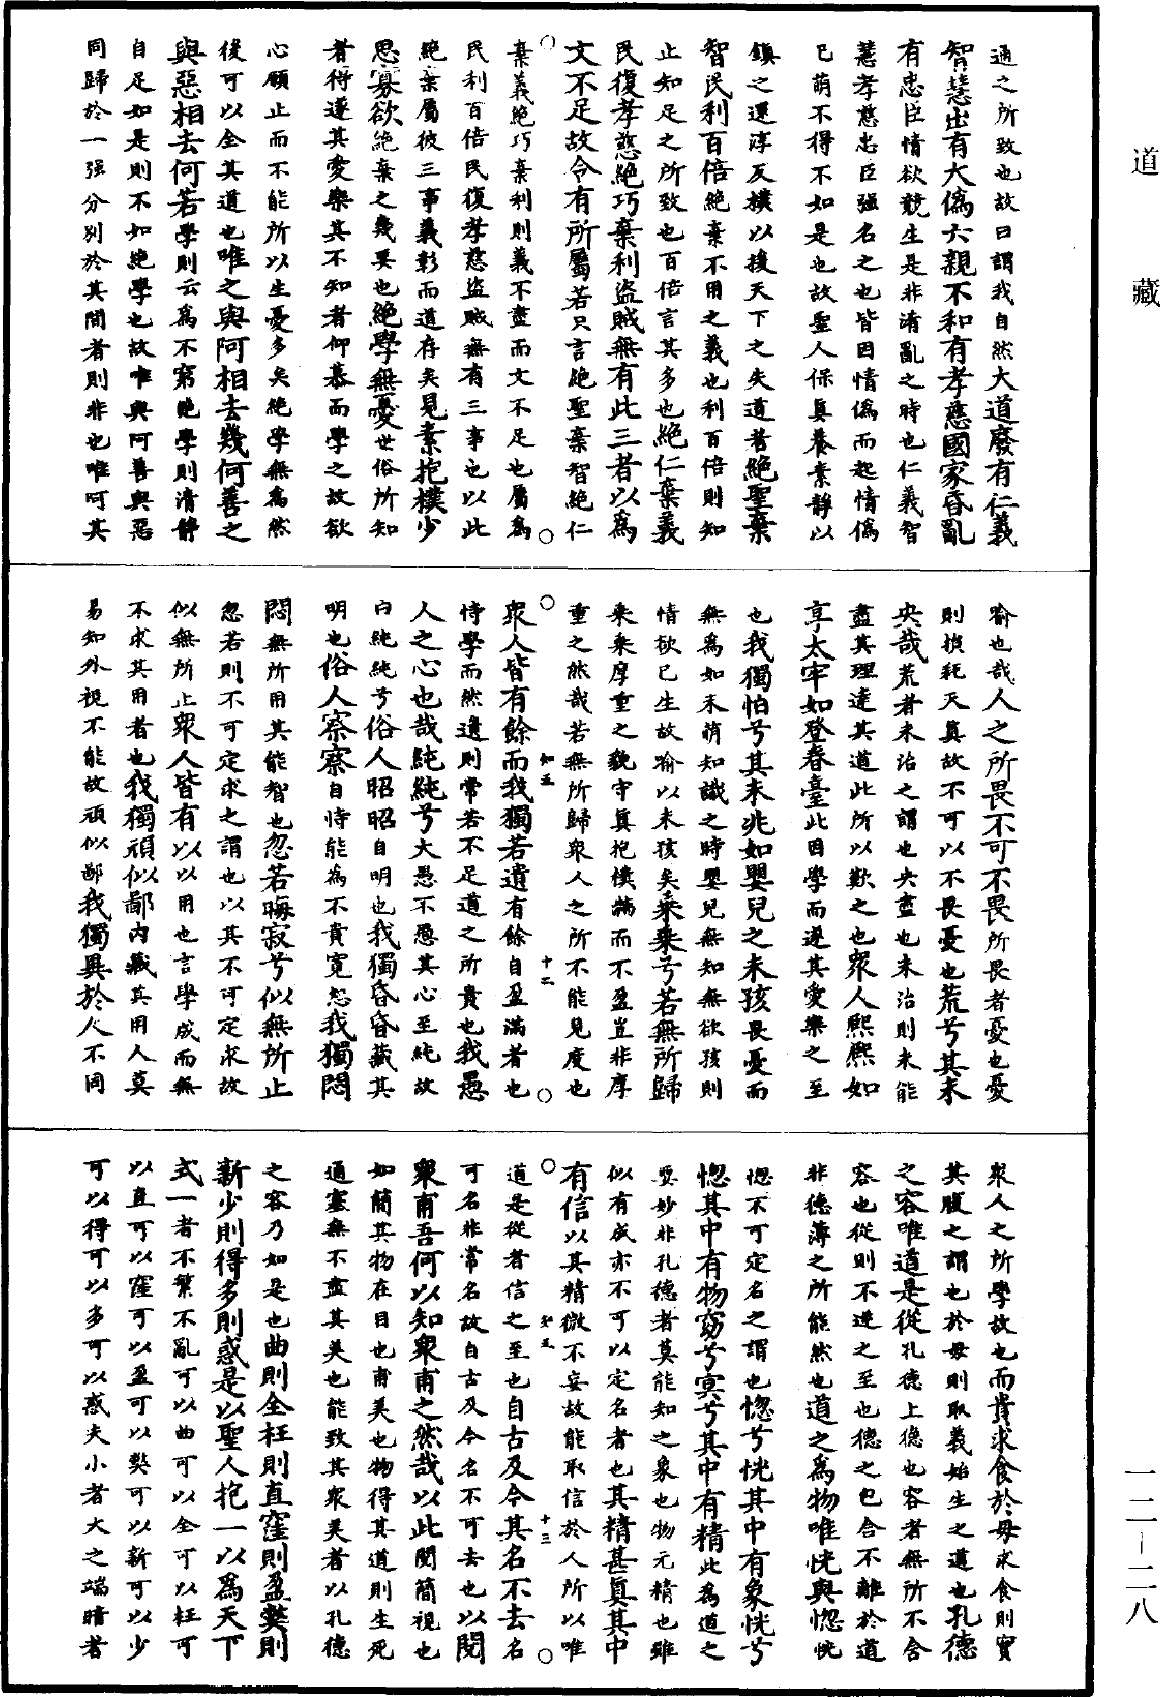 道藏
通之所致也故曰謂我自然大道廢有仁義
智慧出有大偽六親不和有孝慈國家昏亂
有忠臣情欲競生是非淆亂之時也仁義智
慧孝慈忠臣強名之也皆因情偽而起情偽
已萌不得不如是也故聖人保真養素靜以
鎮之還淳反樸以救天下之失道者絕聖棄
智民利百倍絕棄不用之義也利百倍則知
止知足之所致也百倍言其多也絕仁棄義
民復孝慈絕巧棄利盜賊無有此三者以為
文不足故令有所屬若只言絕聖棄智絕仁
棄義絕巧棄利則義不盡而文不足也屬為
民利百倍民復孝慈盜賊無有三事也以此
絕棄屬彼三事義彰而道存矣見素抱樸少
思寡欲絕棄之幾要也絕學無憂世俗所知
者得遂其愛樂其不知者仰慕而學之故欲
心願止而不能所以生憂多矣絕學無為然
後可以全其道也唯之與阿相去幾何善之
與惡相去何若學則云為不窮絕學則清靜
自足如是則不如絕學也故唯與阿善與惡
同歸於一強分別於其間者則非也唯呵其
喻也哉人之所畏不可不畏所畏者憂也憂
則損耗天真故不可以不畏憂也荒兮其未
央哉荒者未治之謂也央盡也未治則未能
盡其理達其道此所以歎之也眾人熙熙如
享太牢如登春臺此因學而遂其愛樂之至
也我獨怕兮其未兆如嬰兒之未孩畏憂而
無為如未萌知識之時嬰兒無知無欲孩則
情欲已生故喻以未孩矣乘乘兮若無所歸
乘乘厚重之貌守真抱樸滿而不盈豈非厚
重之然哉若無所歸眾人之所不能見度也
眾人皆有餘而我獨若遺有餘自盈滿者也
恃學而然遺則常若不足道之所貴也我愚
人之心也哉純純兮大愚不愚其心至純故
曰純純兮俗人昭昭自明也我獨昏昏藏其
明也俗人察察自恃能為不責寬恕我獨悶
悶無所用其能智也忽若晦寂兮似無所止
忽若則不可定求之謂也以其不可定求故
似無所止眾人皆有以以用也言學成而無
不求其用者也我獨頑似鄙內藏其用人莫
易知外視不能故頑似鄙我獨異於人不同
知五 十二
眾人之所學故也而貴求食於母求食則實
其腹之謂也於母則取義始生之道也孔德
之容唯道是從孔德上德也容者無所不含
容也從則不逆之至也德之包合不離於道
非德薄之所能然也道之為物唯恍與惚恍
惚不可定名之謂也惚兮恍其中有象恍兮
惚其中有物窈兮冥兮其中有精此為道之
要妙非孔德者莫能知之象也物元精也雖
似有成亦不可以定名者也其精甚真其中
有信以其精微不妄故能取信於人所以唯
道是從者信之至也自古及今其名不去名
可名非常名故自古及今名不可去也以閱
眾甫吾何以知眾甫之然哉以此閱簡視也
如簡其物在目也甫美也物得其道則生死
通塞無不盡其美也能致其眾美者以孔德
之容乃如是也曲則全枉則直窪則盈獘則
新少則得多則惑是以聖人抱一以為天下
式一者不繁不亂可以曲可以全可以枉可
以直可以窪可以盈可以獘可以新可以少
可以得可以多可以惑夫小者大之端暗者
知五 十三
一二—二八